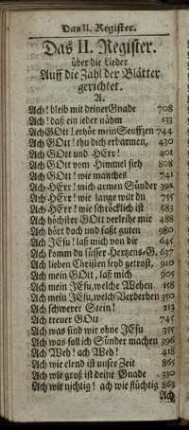 Das II. Register.
Das II. Register.
über die Lieder
Auff die Zahl der Blätter
gerichtet.
A.
Ach! bleib mit deiner Gnade 708
Ach! daß ein jeder nähm 133
Ach GOtt! erhör mein Seuffzen 744
Ach GOtt! thu dich erbarmen, 430
Ach GOtt und HErr! 401
Ach GOtt vom Himmel sieh 808
Ach GOtt! wie manches 741
Ach HErr! mich armen Sünder 392
Ach HErr! wie lange wilt du 765
Ach HErr! wie schröcklich ist 683
Ach höchster GOtt verleihe mir 488
Ach hört doch und faßt guten 980
Ach JEsu! laß mich von dir 645
Ach komm du süsser Hertzens-G. 637
Ach lieben Christen seyd getrost, 910
Ach mein GOtt, laß mich 905
Ach mein JEsu, welche Wehen 158
Ach mein JEsu, welch Verderben 350
Ach schwerer Stein! 113
Ach treuer GOtt 745
Ach was sind wir ohne JEsu 355
Ach was soll ich Sünder machen 396
Ach Weh! ach Weh! 418
Ach wie elend ist unser Zeit 865
Ach wie groß ist deine Gnade 330
Ach wie nichtig! ach wie flüchtig 863
Ach